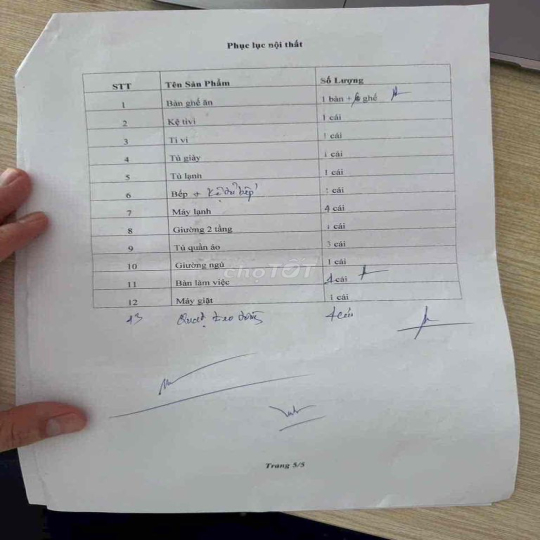 Phục lục nội thất
STT Tên Sản Phẩm Số Lượng
1 Bàn ghế ăn 1 bàn + ghế
2 Kệ tivi 1 cái
3 Ti vi 1 cái
4 Tủ giày 1 cái
5 Tủ lạnh 1 cái
6 Bếp + 1 cái
7 Máy lạnh 4 cái
8 Giường 2 tầng 1 cái
9 Tủ quần áo 3 cái
10 Giường ngủ 1 cái
11 Bàn làm việc 4 cái
12 Máy giặt 1 cái
13 Quạt treo tường 4 cái
chợTỐT
Trang 5/5